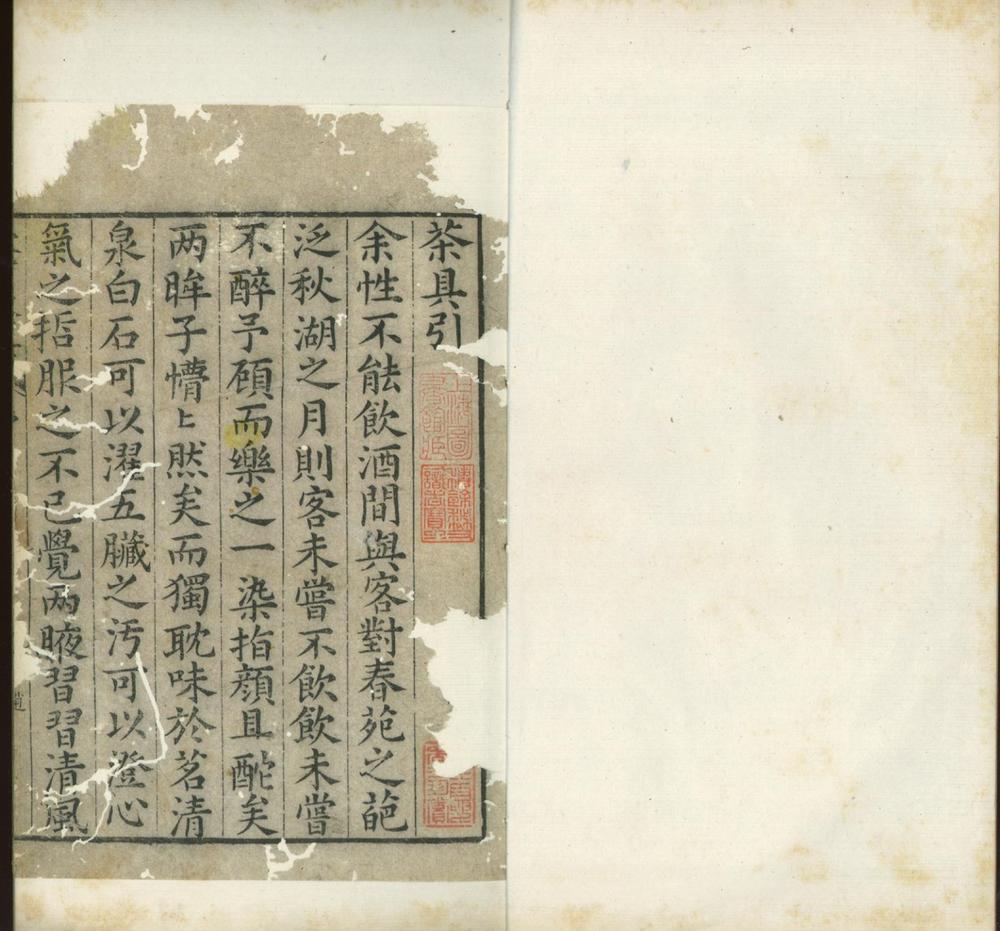 茶具引
余性不能飲酒間與客對春苑之葩
泛秋湖之月則客未嘗不飲飲未嘗
不醉予顧而樂之一染指顏且酡矣
两眸子懵〻然矣而獨耽味於茗清
泉白石可以濯五臟之汚可以澄心
氣之哲服之不已覺两腋習習清風